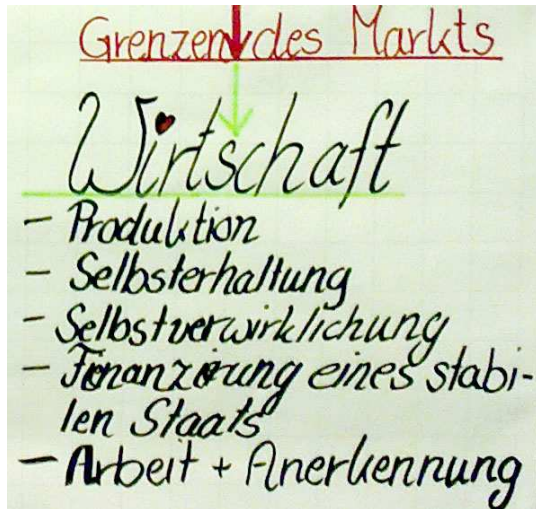 Grenzen des Markts
Wirtschaft
- Produktion
- Selbsterhaltung
- Selbstverwirklichung
- Finanzierung eines stabi-
len Staats
- Arbeit + Anerkennung